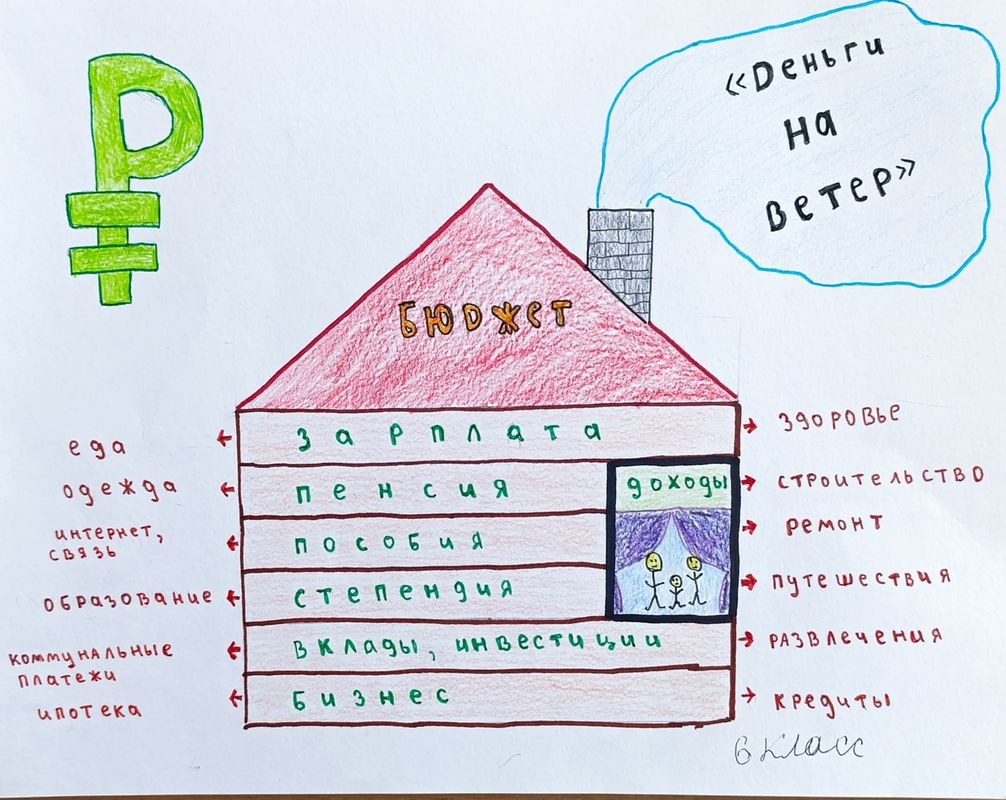 «Деньги
на
ветер»
бюджет
зарплата
пенсия
доходы
пособия
степендия
вклады, инвестиции
бизнес
еда
одежда
интернет,
связь
образование
коммунальные
платежи
ипотека
здоровье
строительство
ремонт
путешествия
развлечения
кредиты
6 класс